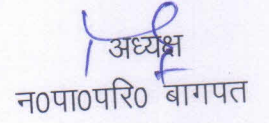 अध्यक्ष
न0पा0परि0 बागपत